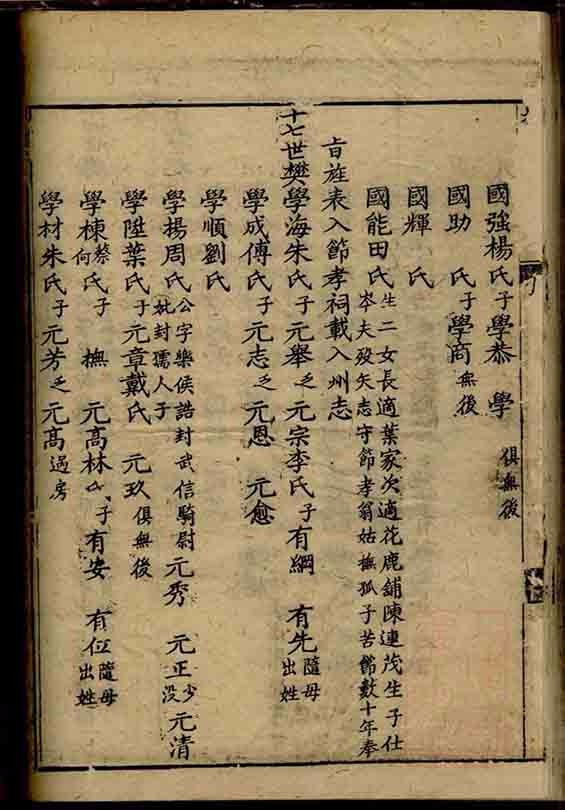 國強楊氏子學恭 學 俱無後
國助 氏子學商無後
國輝 氏
國能田氏生二女長適葉家次適花鹿鋪陳連茂生子仕岑夫歿矢志守節孝翁姑撫孤子苦節數十年奉
旨旌表入節孝祠載入州志
十七世樊學海朱氏子元舉乏 元宗李氏子有綱 有先隨母出姓
學成傅氏子元志乏 元恩 元愈
學順劉氏
學揚周氏公字樂侯誥封武信騎尉妣封孺人子元秀 元正少没 元清
學陞葉氏子元章戴氏 元玖俱無後
學棟蔡何氏子 橅 元高林氏子有安 有位隨母出姓
學材朱氏子元芳乏 元高過房